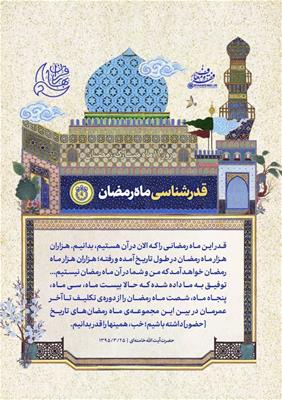 قدرشناسی ماه رمضان
قدر این ماه رمضانی را که الان در آن هستیم، بدانیم. هزاران
هزار ماه رمضان در طول تاریخ آمده و رفته؛ هزاران هزار ماه
رمضان خواهد آمد که من و شما در آن ماه رمضان نیستیم...
توفیق به ما داده شده که حالا بیست ماه، سی ماه،
پنجاه ماه، شصت ماه رمضان را از دوره‌ی تکلیف تا آخر
عمرمان در بین این مجموعه‌ی ماه رمضان‌های تاریخ
[حضور] داشته باشیم؛ خب، همینها را قدر بدانیم.
حضرت آیت الله خامنه‌ای | ۱۳۹۵/۳/۲۵